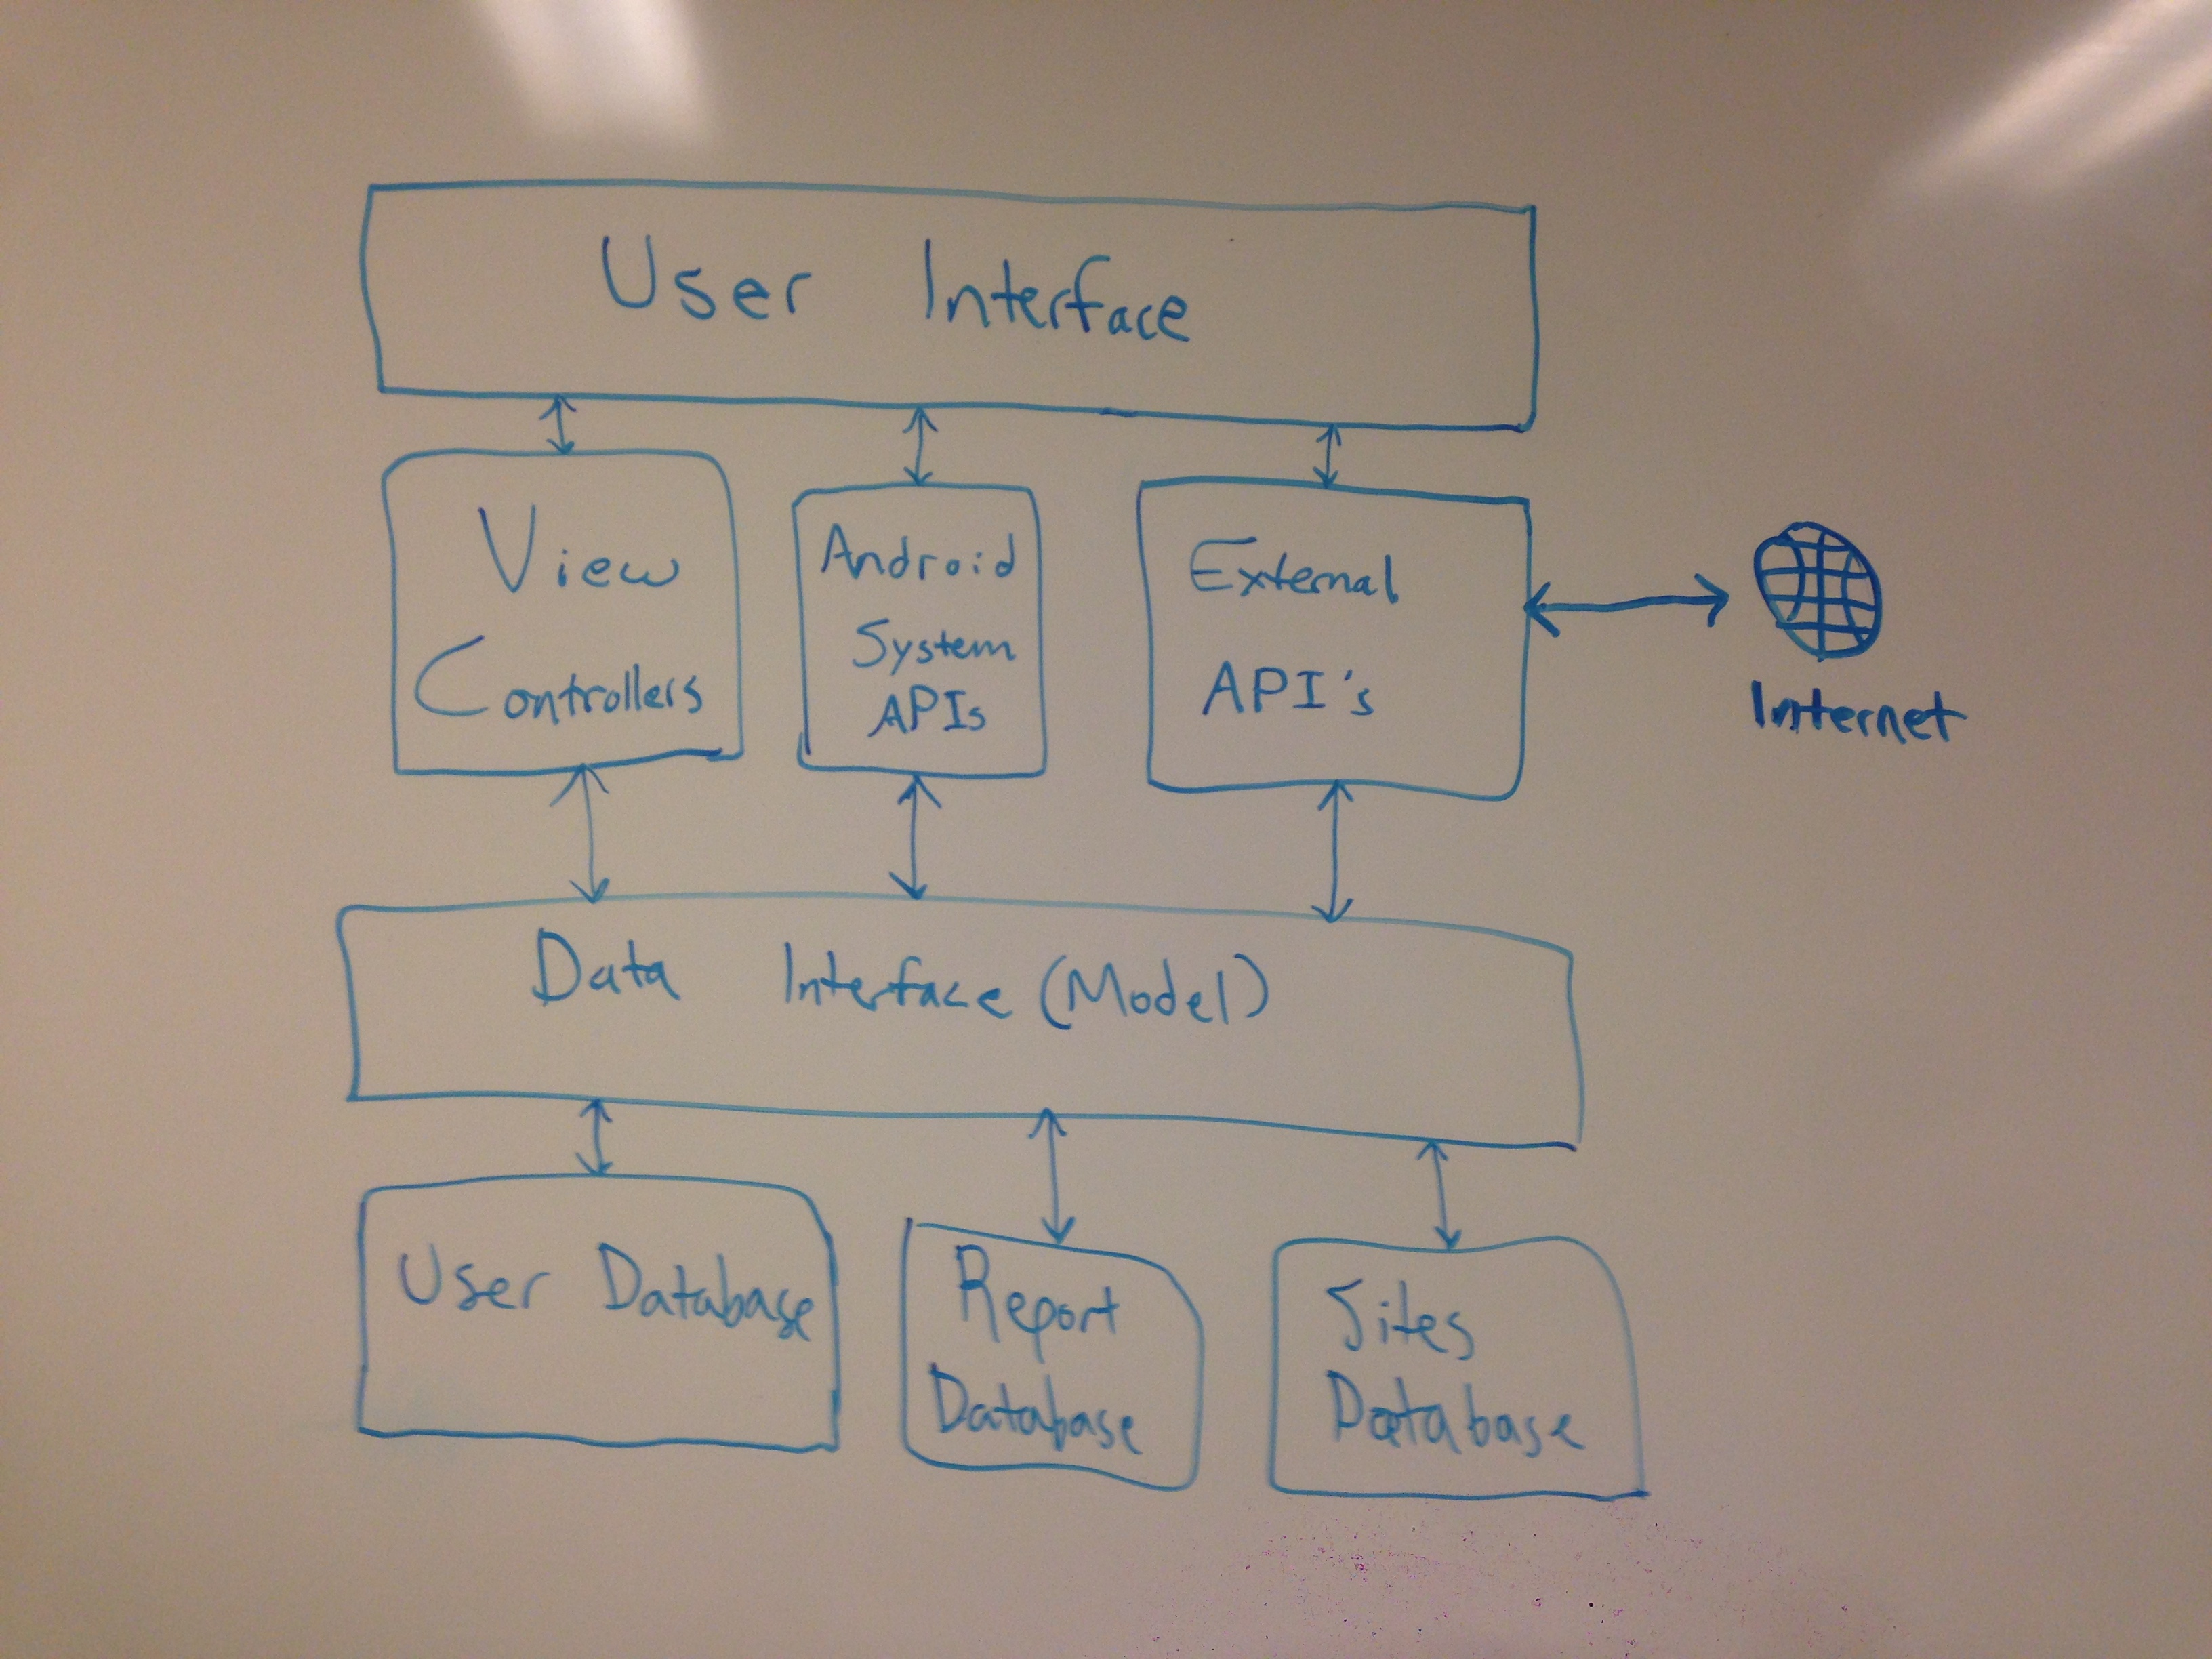 User Interface
View
Controllers
Android
System
APIs
External
API's
Internet
Data Interface (Model)
User Database
Report
Database
Sites
Database